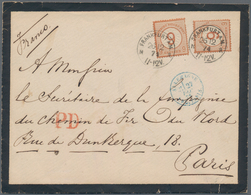 Franco
FRANKFURT
9
9
P.D.
A Monsieur
le Secrétaire de la Compagnie
du Chemin de fer du Nord
Rue de Dunkerque, 18.
Paris